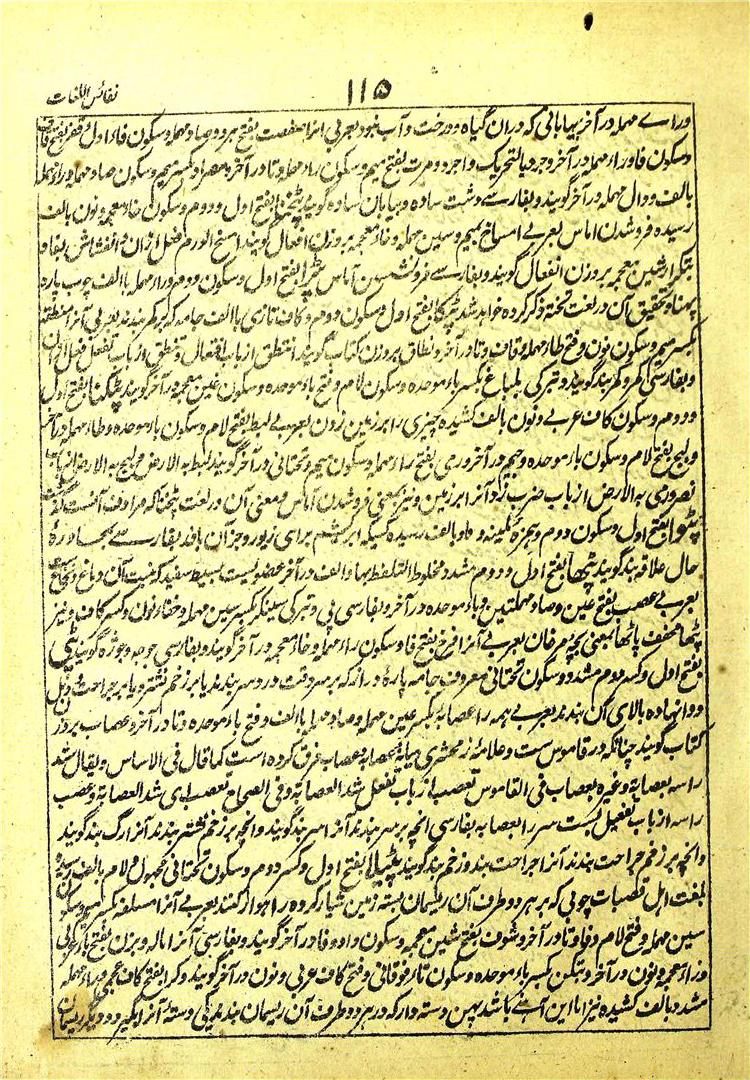 نفائس اللغات
۱۱۵
وراے مہملہ در آخر بیابانی کہ دران گیاہ و درخت و آب نبود بعربی آنرا صفصف بفتح ہر دو صاد مہملہ و سکون فاء اول و قفر بفتح قاف
و سکون فا و راء مہملہ در آخر و جرد بالتحریک و اجرد و مرت بفتح میم و سکون راء مہملہ و تا در آخر و مصراد بکسر میم و سکون صاد مہملہ و راء مہملہ
بالف و دال مہملہ در آخر گویند و بفارسے دشت سادہ و بیابان سادہ گویند پٹخنا بفتح اول و دوم و سکون خاء معجمہ و نون بالف
رسیدہ فروشدن اماس بعربے امساخ بمیم و سین مہملہ و خاء معجمہ بر وزن افعال گویند امسخ الورم فعل ازان و انفشاش بفا و
بتکرار شین معجمہ بر وزن انفعال گویند و بفارسے فرونشستن آماس پٹرا بفتح اول و سکون دوم و راء مہملہ با الف چوب پارہ
پہنا و تحقیق آن در لغت تختہ ذکر کردہ خواہد شد پٹکا بفتح اول و سکون دوم و کاف تازی با الف جامہ کہ بر کمر بندند بعربی آنرا منطقہ
بکسر میم و سکون نون و فتح طاء مہملہ و قاف و تا در آخر و نطاق بر وزن کتاب گویند انتطق از باب افتعال و تنطق از باب تفعل فعل ازان
و بفارسی کمر و کمر بند گویند و بترکی بلباغ بکسر باء موحدہ و سکون لام و فتح باء موحدہ و سکون غین معجمہ در آخر گویند پٹکنا بفتح اول
و دوم و سکون کاف عربے و نون بالف کشیدہ چیزی را بر زمین زدن بعربے لبط بفتح لام و سکون باء موحدہ و طاء مہملہ در آخر
و لبج بفتح لام و سکون باء موحدہ و جیم در آخر و رمی بفتح راء مہملہ و سکون میم و تحتانی در آخر گویند لبط بہ الارض و لبج بہ الارض از باب
نصر و رمی بہ الارض از باب ضرب زد آنرا بر زمین و نیز بمعنی فروشدن آماس و معنی آن در لغت پٹخنا کہ مرادف آنست گذشت
پٹوا بفتح اول و سکون دوم و ہمزہ ملینہ و واو بالف رسیدہ کسیکہ ابریشم برای زیور و جز آن بافد بفارسے بمحاورۂ
حال علاقہ بند گویند پٹھا بفتح اول و دوم مشدد مخلوط التلفظ بہا و الف در آخر عضویست بسیط سفید کہ منبت آن دماغ و نخاع
بعربے عصب بفتح عین و صاد مہملتین و باء موحدہ در آخر و بفارسی پی و بترکی سینکر بکسر سین مہملہ و خفاء نون و کسر کاف و نیز
پٹھا مخفف پاٹھا بمعنی بچہ مرغان بعربے آنرا فرخ بفتح فا و سکون راء مہملہ و خاء معجمہ در آخر گویند و بفارسی جوجہ و جوزہ گویند پٹی
بفتح اول و کسر دوم مشدد و سکون تحتانی معروف جامہ پارۂ دراز کہ بر سر وقت درد سر بندند یا بر زخم نشتر و یا بر جراحت و دمل
دوا نہادہ بالای آن بندند بعربے ہمہ را عصابہ بکسر عین مہملہ و صاد مہملہ با الف و فتح باء موحدہ و تا در آخر و عصاب بر وزن
کتاب گویند چنانکہ در قاموس ست و علامۂ زمخشری میانۂ عصابہ و عصاب فرق کردہ است کما قال فی الاساس و یقال شد
راسہ بعصابۃ و غیرہ بعصاب فی القاموس تعصب از باب تفعل شد العصابۃ و فی الصراح تعصب ای شد العصابۃ و عصب
راسہ از باب تفعیل بست سر را بعصابہ بفارسی آنچہ بر سر بندند آنرا سر بند گویند و آنچہ بر زخم نشتر بندند آنرا رگ بند گویند
و آنچہ بر زخم جراحت بندند آنرا جراحت بند و زخم بند گویند پٹیلا بفتح اول و کسر دوم و سکون تحتانی مجہول و لام بالف رسیدہ
بلغت اہل قصبات چوبی کہ بر ہر دو طرف آن ریسمان بستہ زمین شیار کردہ را ہموار کنند بعربے آنرا مسلفہ بکسر میم و سکون
سین مہملہ و فتح لام و فا و تا در آخر و شوف بفتح شین معجمہ و سکون واو و فا در آخر گویند و بفارسی آنرا مالہ و بزن بفتح باء عربی
و زاء معجمہ و نون در آخر و بتکن بکسر باء موحدہ و سکون تاء فوقانی و فتح کاف عربی و نون در آخر گویند و کرا بفتح کاف عجمی و راء مہملہ
مشدد بالف کشیدہ نیز اما این آلتے باشد پہن دستہ دار کہ در ہر دو طرف آن ریسمان بندند یکی دستۂ آنرا بگیرد و دیگر ریسمان